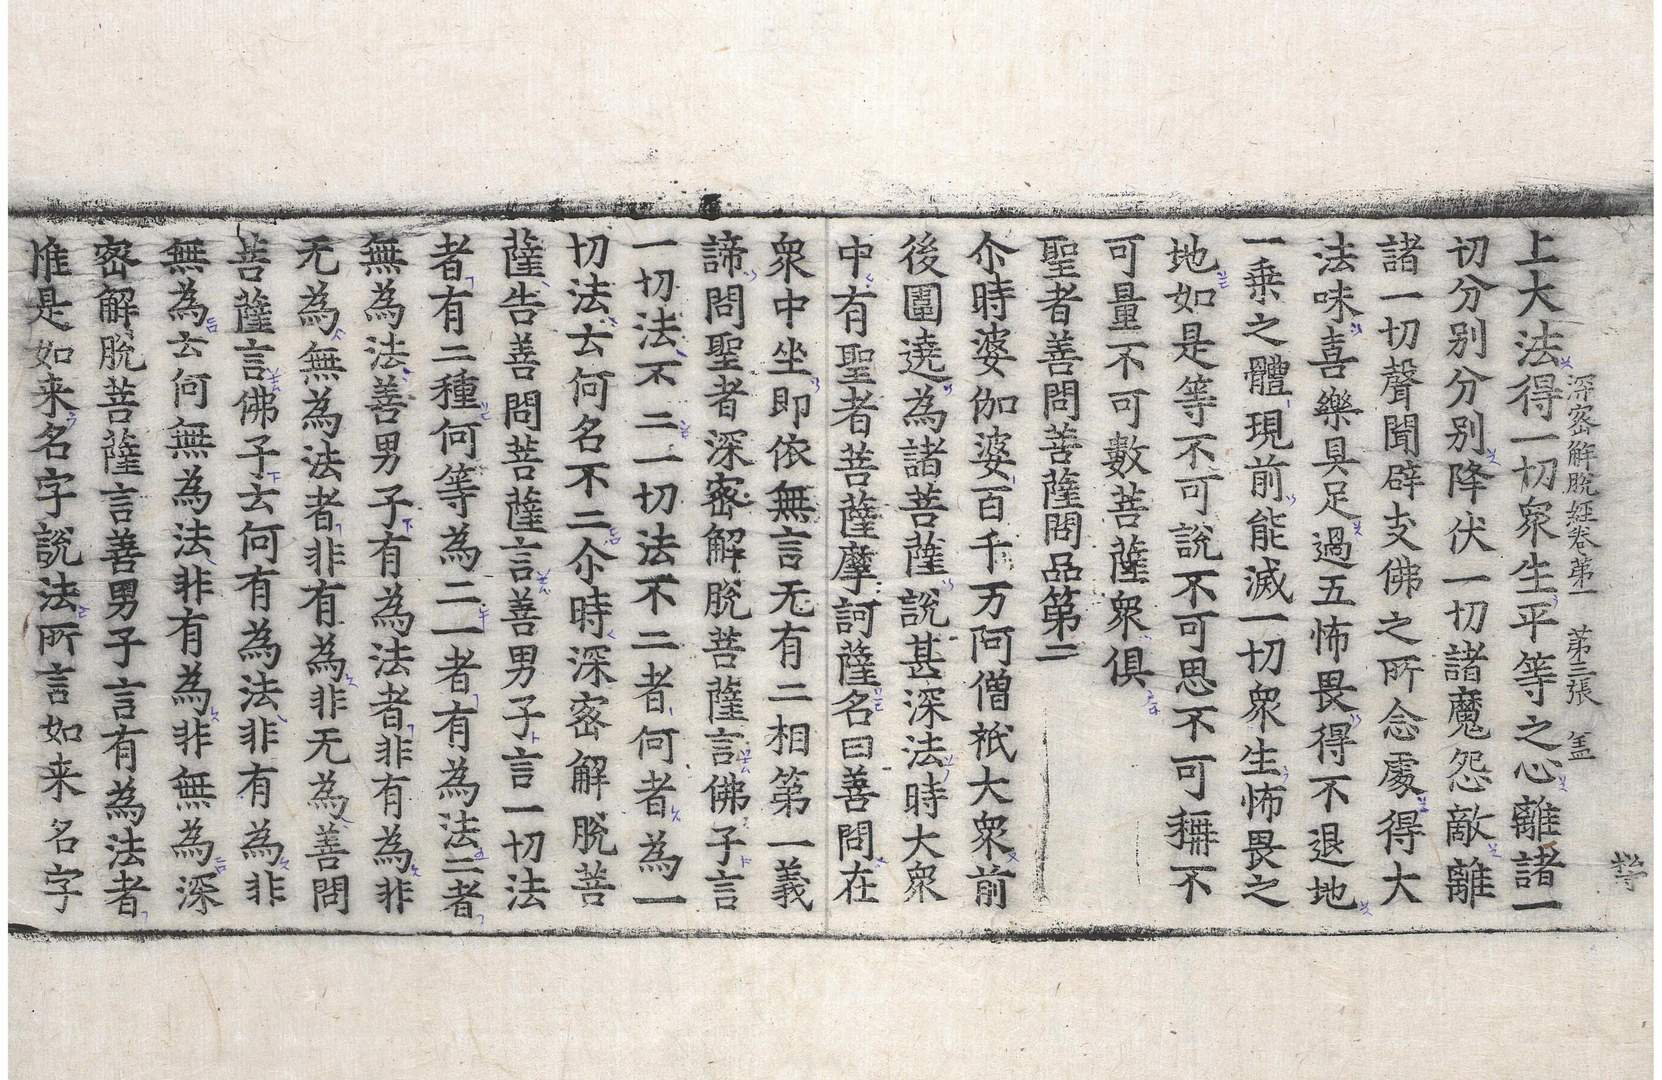 深密解脫經卷第一 第三張 盖
上大法得一切衆生平等之心離諸一
切分別分別降伏一切諸魔怨敵離
諸一切聲聞辟支佛之所念處得大
法味喜樂具足過五怖畏得不退地
一乗之體現前能滅一切衆生怖畏之
地如是等不可說不可思不可稱不
可量不可數菩薩衆俱
聖者善問菩薩問品第二
尒時婆伽婆百千万阿僧祇大衆前
後圍遶為諸菩薩說甚深法時大衆
中有聖者菩薩摩訶薩名曰善問在
衆中坐即依無言无有二相第一義
諦問聖者深密解脫菩薩言佛子言
一切法不二一切法不二者何者為一
切法云何名不二尒時深密解脫菩
薩告善問菩薩言善男子言一切法
者有二種何等為二一者有為法二者
無為法善男子有為法者非有為非
无為無為法者非有為非无為善問
菩薩言佛子云何有為法非有為非
無為云何無為法非有為非無為深
密解脫菩薩言善男子言有為法者
惟是如来名字說法所言如来名字